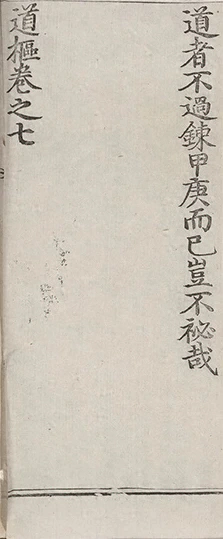 道者不過鍊甲庚而已豈不祕哉
道樞卷之七